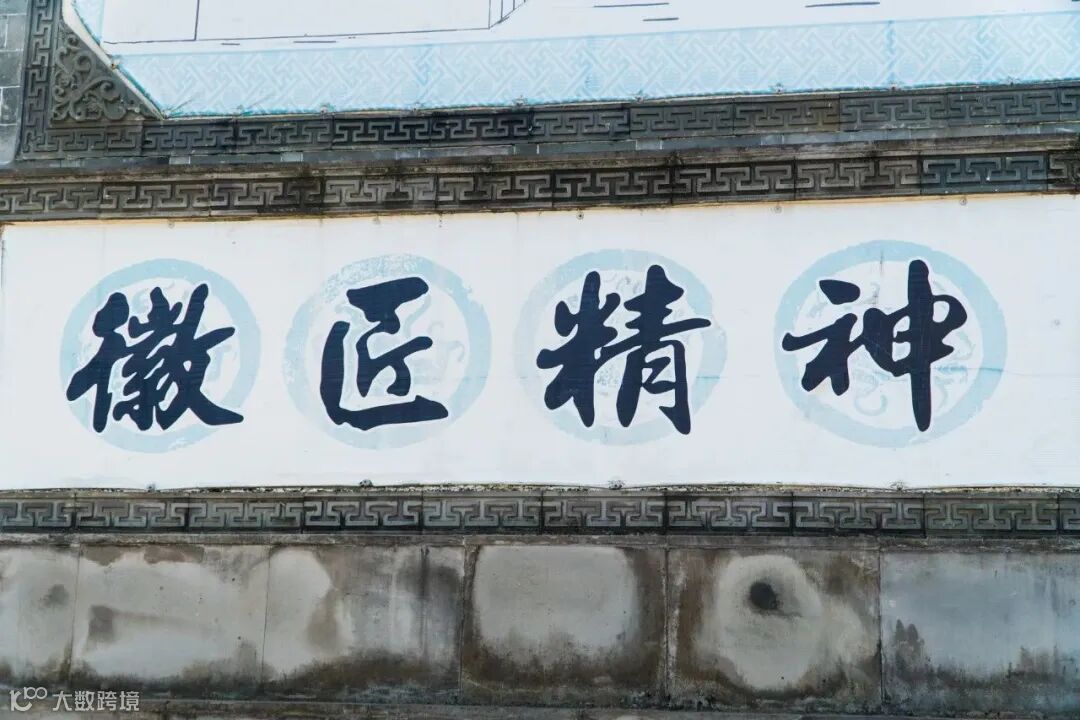 徽匠精神
大数跨境